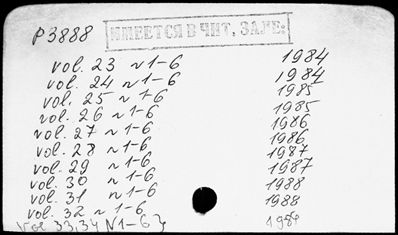 P3888
ИМЕЕТСЯ В ЧИТ. ЗАЛЕ:
vol. 23 N 1-6 1984
vol. 24 N 1-6 1984
vol. 25 N 1-6 1985
vol. 26 N 1-6 1985
vol. 27 N 1-6 1986
vol. 28 N 1-6 1986
vol. 29 N 1-6 1987
vol. 30 N 1-6 1987
vol. 31 N 1-6 1988
vol. 32 N 1-6 1988
vol 33,34 N 1-6 } 1989